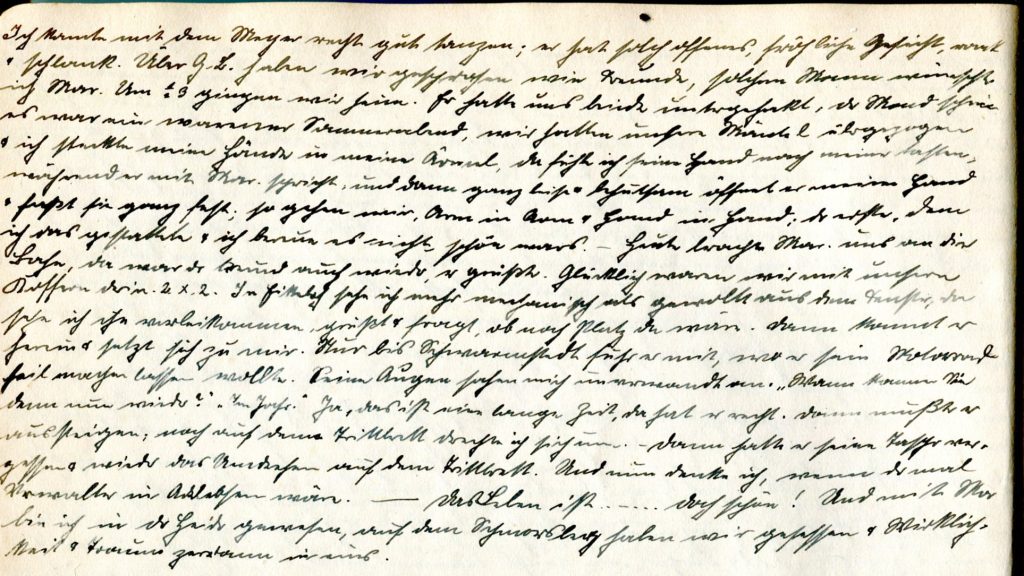 Ich kannte mit dem Meyer recht gut tanzen; er hat solch offenes, fröhliche Gesicht, war
u schlank. Über G. L. haben wir gesprochen wie Freunde, solchen Mann wünscht
ich Mar. Um ½ 3 gingen wir heim. Er hatte uns beide untergehakt, der Mond schien
es war ein warmer Sommerabend, wir hatten unsere Mäntel übergezogen
u ich steckte meine Hände in meine Ärmel, da fühlt ich seine Hand nach meiner tasten,
während er mit Mar. spricht, und dann ganz leise u behutsam öffnet er meine Hand
u faßt sie ganz fest; so gehen wir, Arm in Arm u Hand in Hand; der erste, dem
ich das gestattete u ich bereue es nicht, schön wars. – Heute brachte Mar. uns an die
Bahn, da war der Freund auch wieder, er grüßte. Glücklich waren wir mit unsern
Koffern drin. 2 x 2. In sehe ich mehr mechanisch als gewollt aus dem Fenster, da
sehe ich ihn vorbeikommen, grüßt u fragt, ob noch Platz da wäre. Dann kommt er
herein u setzt sich zu mir. Nur bis Schwarmstedt fuhr er mit, wo er sein Motorrad
heil machen lassen wollte. Seine Augen sahen mich unverwandt an. „Wann kommen Sie
denn nun wieder?" „Im Jahr." Ja, das ist eine lange Zeit, da hat er recht. Dann mußte er
aussteigen; noch auf dem Trittbrett drehte ich sich um. – Dann hatte er seine Tasche ver-
gessen u wieder das Umdrehen auf dem Trittbrett. Und nun denke ich, wenn der mal
Verwalter in Adelebsen wäre. — Das Leben ist ..... doch schön! Und mit Mar
bin ich in der Heide gewesen, auf dem haben wir gesessen u Wirklich-
keit u Traum zerrann in eins.